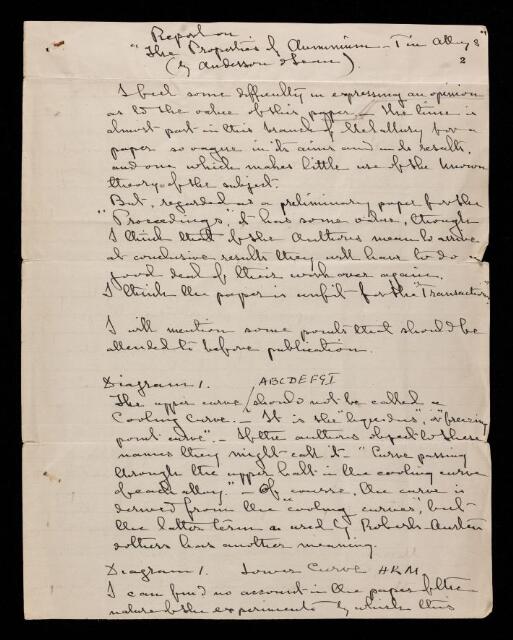 Report on
"The Properties of Aluminium-Tin Alloys"
(by Anderson & Lean).
2
I feel some difficulty in expressing an opinion
as to the value of this paper - the time is
almost past in this branch of Metallurgy for a
paper so vague in its aims and in its results,
and one which makes little use of the known
theory of the subject.
But, regarded as a preliminary paper for the
"Proceedings", it has some value, though
I think that if the Authors mean to arrive
at conclusive results they will have to do a
good deal of their work over again.
I think the paper is unfit for the "Transactions".
I will mention some points that should be
attended to before publication.
Diagram 1. ABCDEFGI
The upper curve / should not be called a
Cooling Curve. - It is the "liquidus", or "freezing
point curve". - If the authors object to these
names they might call it "Curve passing
through the upper halt in the cooling curve
of each alloy." - Of course, the curve is
derived from the "cooling curves", but
the latter term as used by Roberts-Austen
& others has another meaning.
Diagram 1. Lower Curve HKM
I can find no account in the paper of the
nature of the experiments by which this